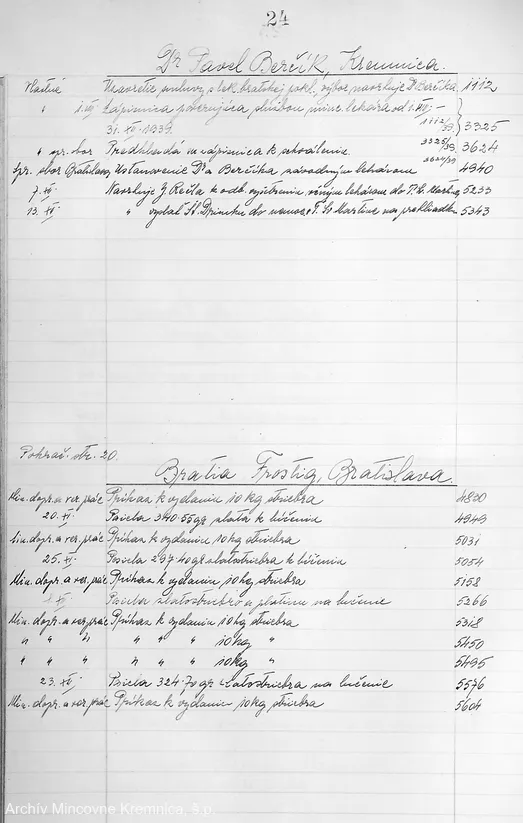 24
Dr Pavel Berčík, Kremnica.
Vlastné Uzavretie smluvy s lek. bratskej pokl., výbor navrhuje Dr. Berčíka. 1112
" 1. III. Zápisnica potvrdzujúca službu minc. lekára od 1. III. –
31. XII. 1939. 1112/39 3325
" spr. sbor Predkladá sa zápisnica k schváleniu 3325/39. 3624
Spr. sbor Bratislava, Ustanovenie Dr. a Berčíka závodným lekárom 3624/39 4940
7. XI. Navrhuje J. Rečla k odb. vyšetreniu lekárom do T. Sv. Martina 5233
13. XI. " vyslať Št. do nemoc. v T. Sv. Martine na prehliadku 5343
Pokrač. str. 20.
Bratia Frostig, Bratislava.
Min. dopr. a ver. prác Príkaz k vydaniu 10 kg striebra 4890
20. XI. Posiela 340·55 gr zlata k lúčeniu 4949
Min. dopr. a ver. prác Príkaz k vydaniu 10 kg striebra 5031
25. XI. Posiela 297·40 gr zlatostriebra k lúčeniu 5054
Min. dopr. a ver. prác Príkaz k vydaniu 10 kg striebra 5158
XII. Posiela zlatostriebro a platinu na lúčenie 5266
Min. dopr. a ver. prác Príkaz k vydaniu 10 kg striebra 5318
" " " " " " 10 kg " 5450
" " " " " " 10 kg " 5495
23. XII. Posiela 324·70 gr zlatostriebra na lúčenie 5576
Min. dopr. a ver. prác Príkaz k vydaniu 10 kg striebra 5604
Archív Mincovne Kremnica, š.p.